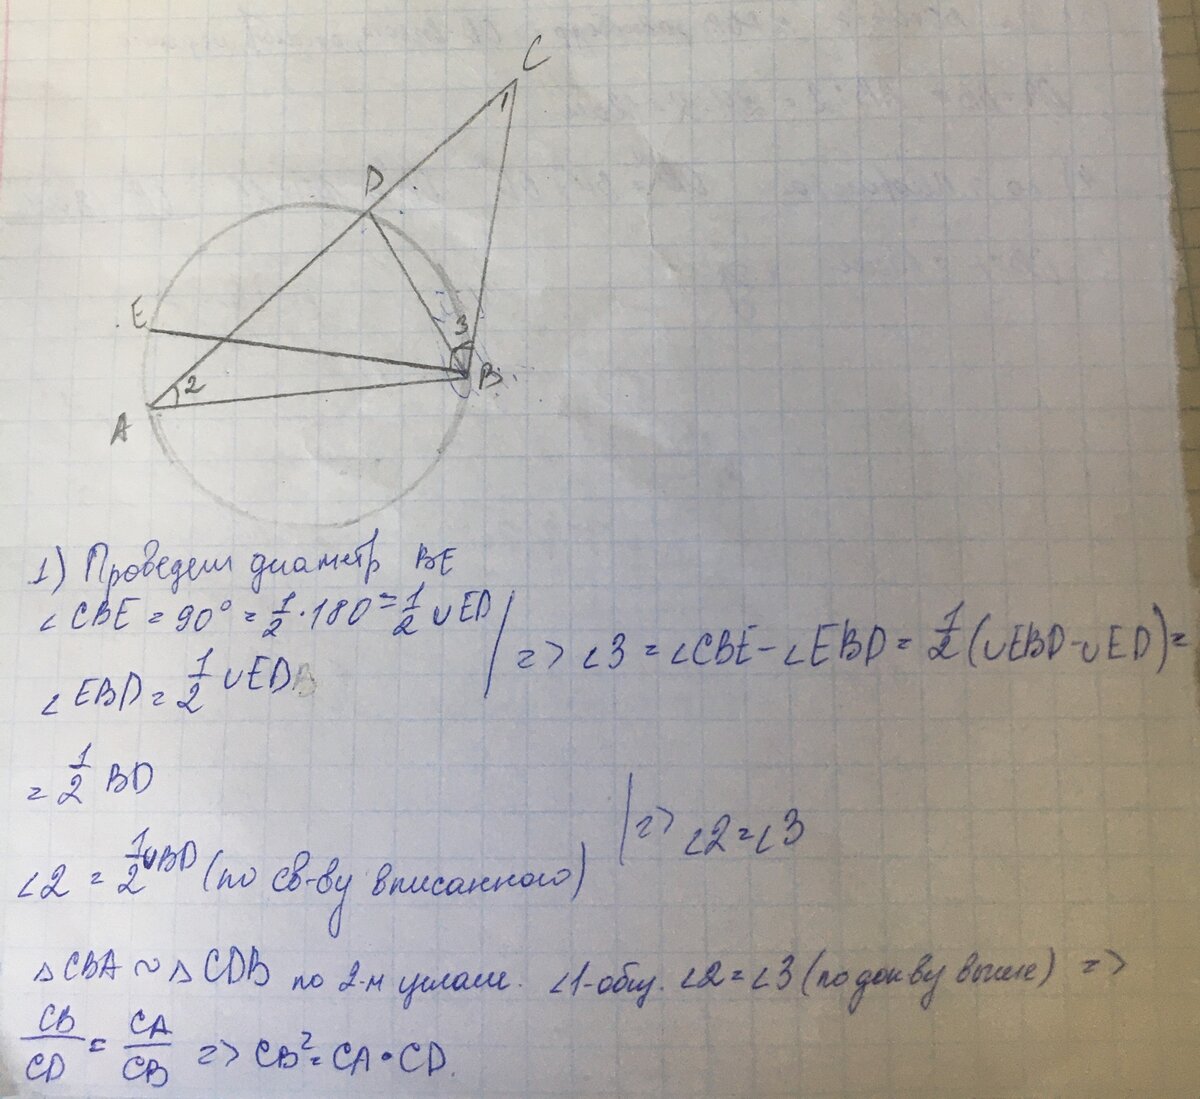 C
1
D
E
3
2
B
A
1) Проведем диаметр BE
∠CBE = 90° = 1/2 · 180 = 1/2 ∪ED
∠EBD = 1/2 ∪EDB
=> ∠3 = ∠CBE - ∠EBD = 1/2 (∪EBD - ∪ED) =
= 1/2 BD
∠2 = 1/2 ∪BD (по св-ву вписанного)
=> ∠2 = ∠3
△CBA ~ △CDB по 2-м углам. ∠1-общ. ∠2 = ∠3 (по док ву выше) =>
CB/CD = CA/CB => CB² = CA · CD.